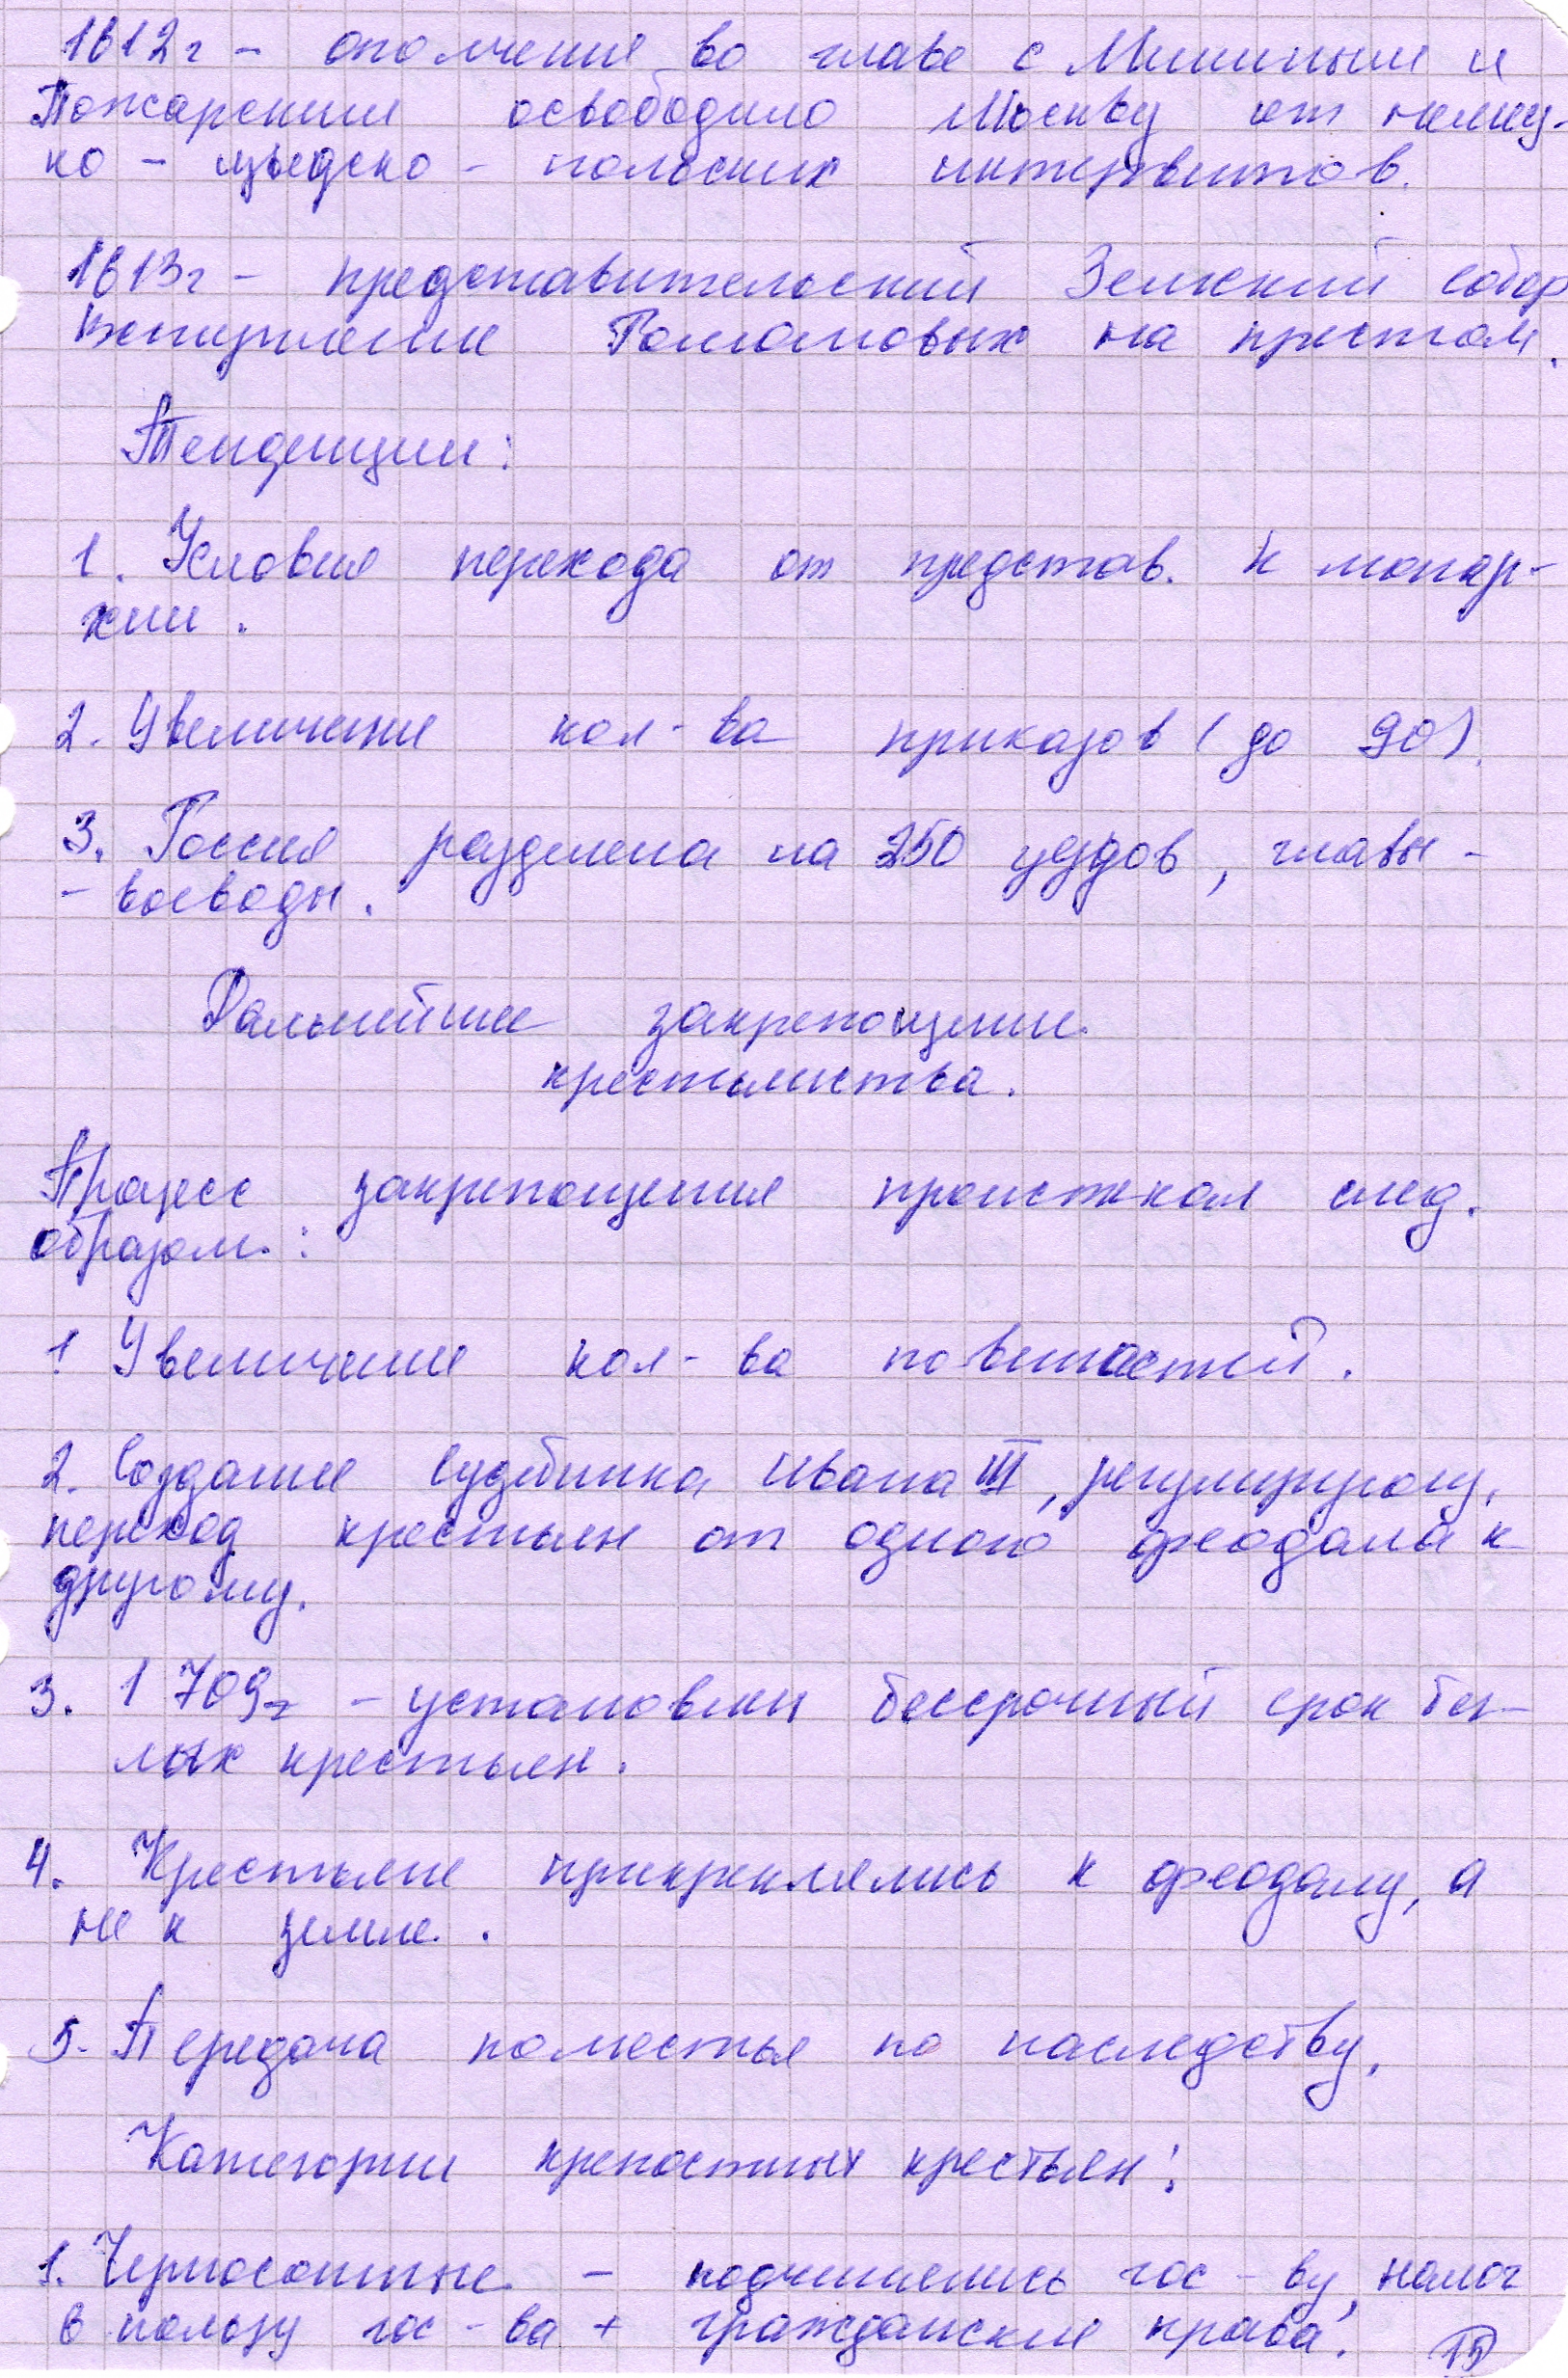 1612г - ополчение во главе с Мининым и
Пожарским освободило Москву от немец-
ко - шведско - польских интервентов.
1613г - представительский Земский собор
Вступление Романовых на престол.
Тенденции:
1. Условия перехода от представ. к монар-
хии.
2. Увеличение кол-ва приказов (до 90).
3. Россия разделена на 250 уездов, главы -
- воеводы.
Дальнейшее закрепощение
крестьянства.
Процесс закрепощения происходил след.
образом:
1 Увеличение кол-ва повинностей.
2. Создание Судебника Ивана III, регулирующ.
переход крестьян от одного феодала к
другому.
3. 1709г - установлен бессрочный срок бег-
лых крестьян.
4. Крестьяне прикреплялись к феодалу, а
не к земле.
5. Передача поместья по наследству.
Категории крепостных крестьян:
1. Черносотные - подчинялись гос-ву, налог
в пользу гос-ва + гражданские права.
15